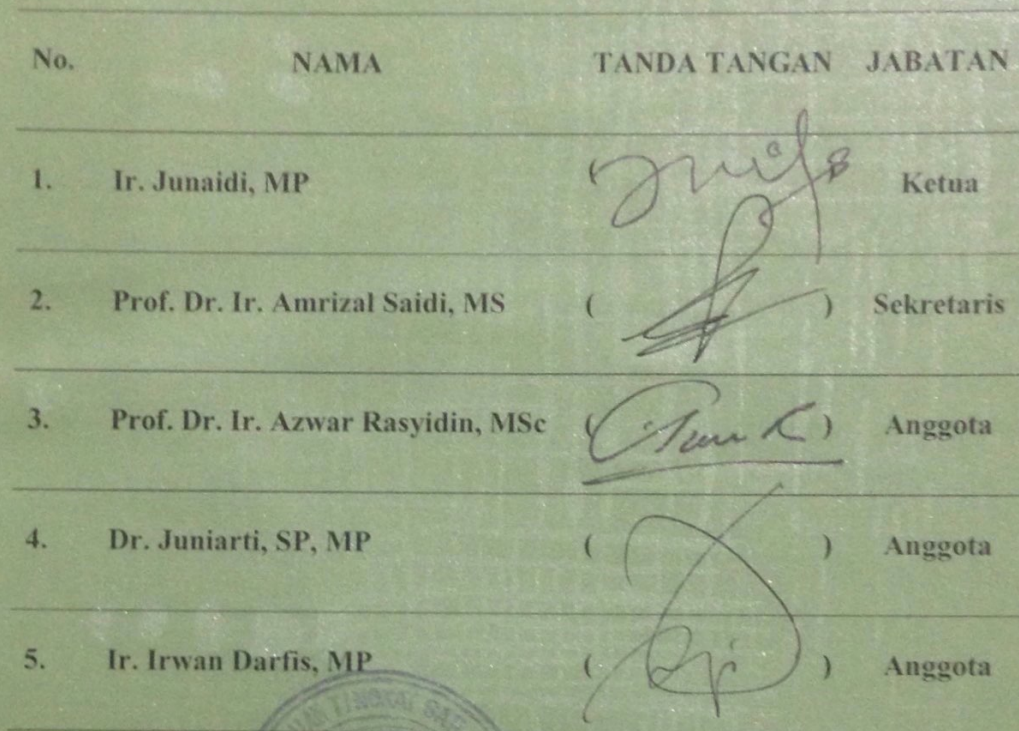 No. NAMA TANDA TANGAN JABATAN
1. Ir. Junaidi, MP Ketua
2. Prof. Dr. Ir. Amrizal Saidi, MS ( ) Sekretaris
3. Prof. Dr. Ir. Azwar Rasyidin, MSc ( ) Anggota
4. Dr. Juniarti, SP, MP ( ) Anggota
5. Ir. Irwan Darfis, MP ( ) Anggota
TINGKAT